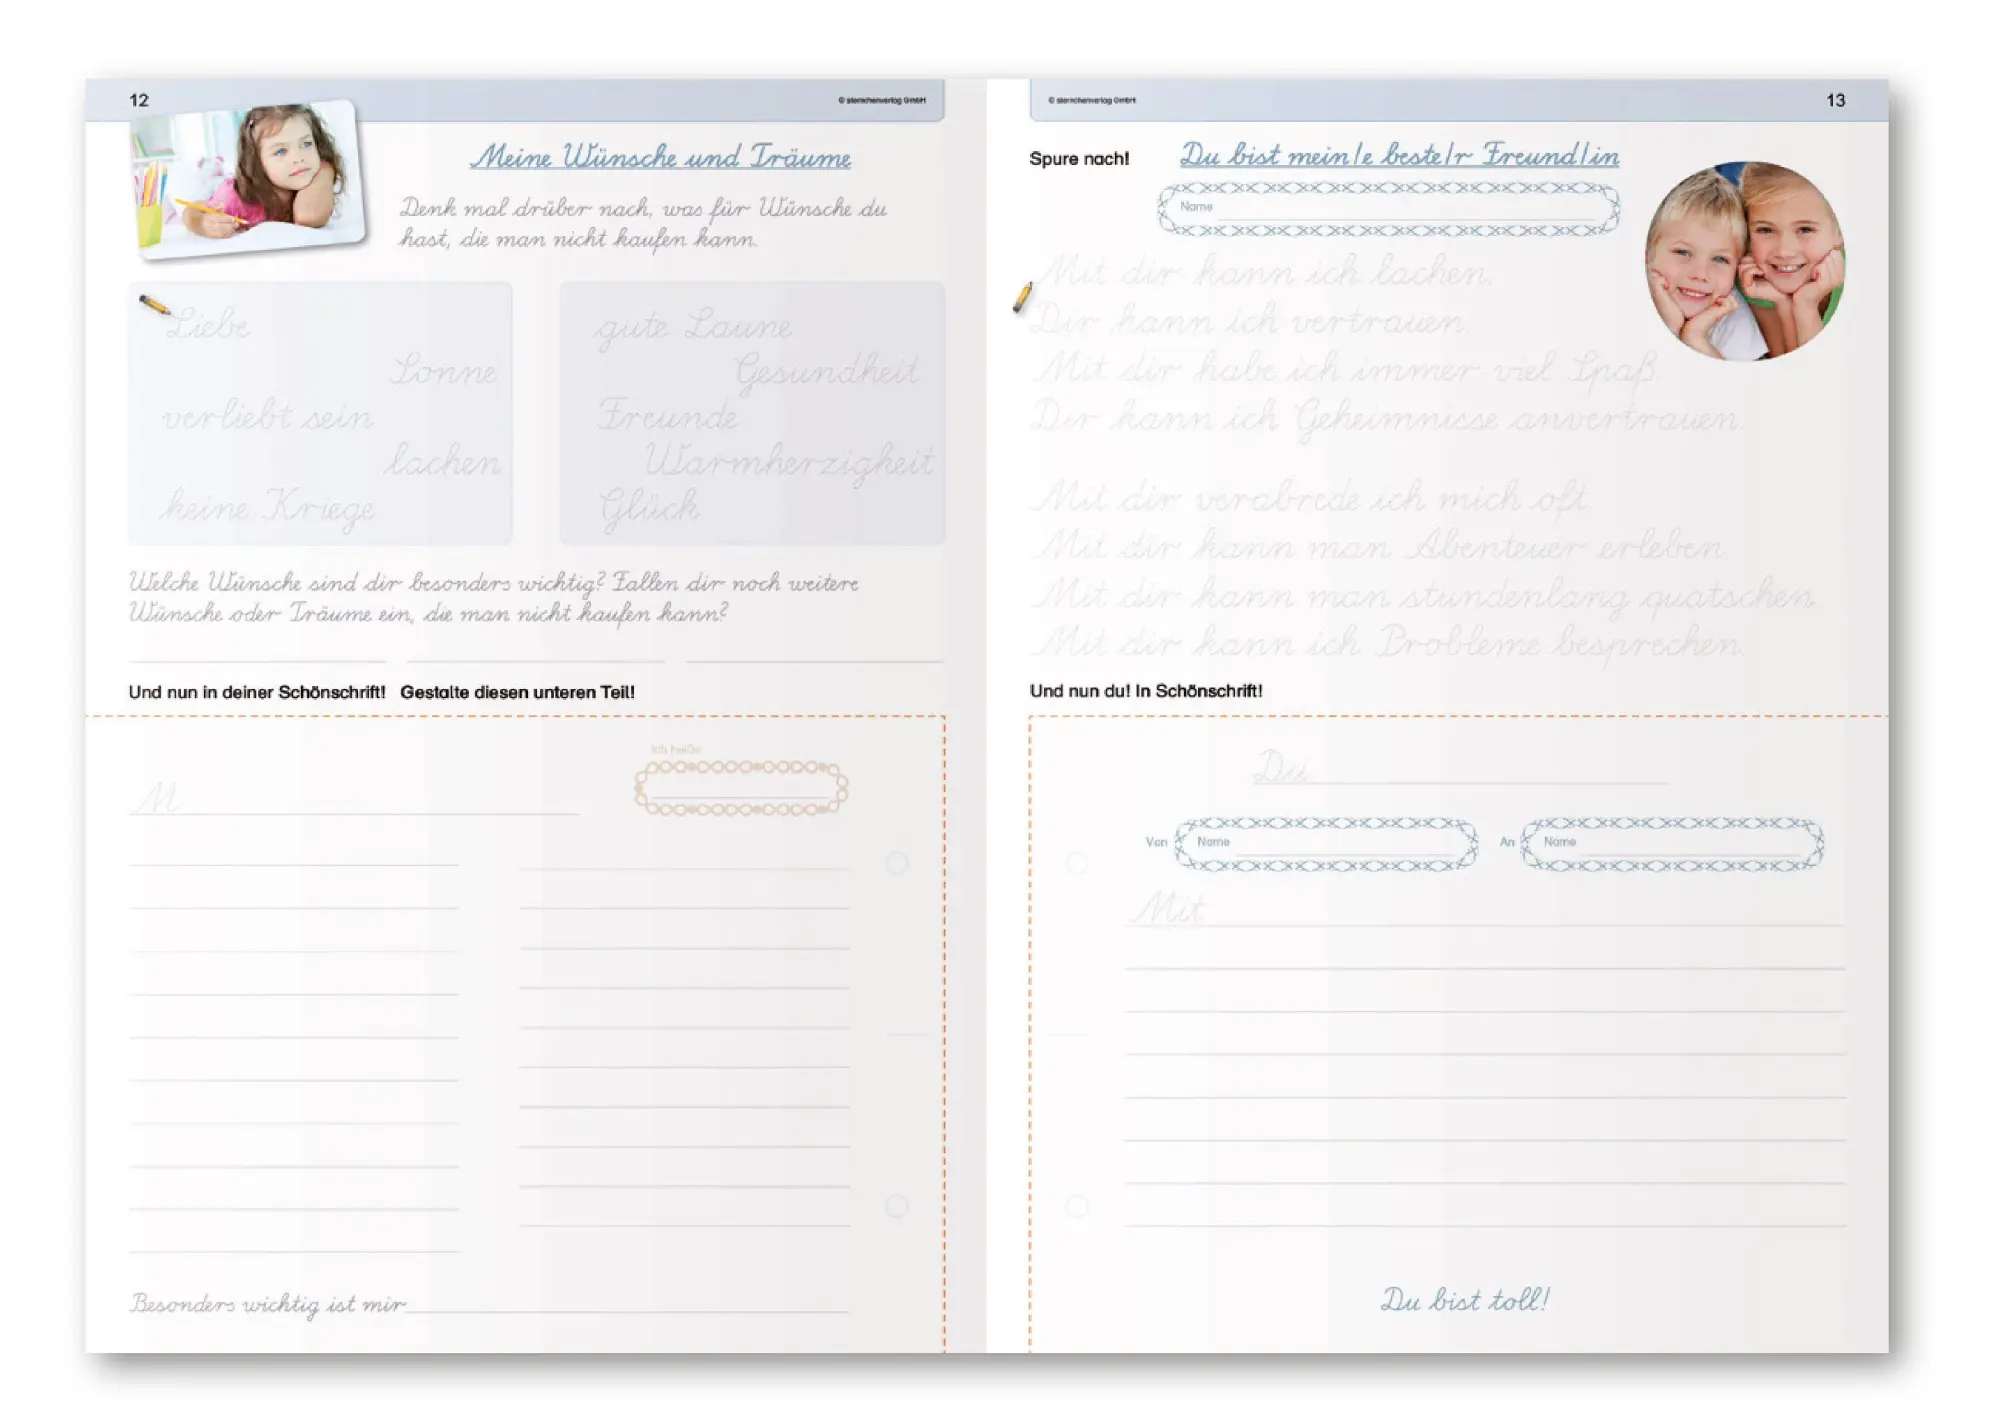 12
© sternchenverlag GmbH
Meine Wünsche und Träume
Denk mal drüber nach, was für Wünsche du
hast, die man nicht kaufen kann.
Liebe
Sonne
verliebt sein
lachen
keine Kriege
gute Laune
Gesundheit
Freunde
Warmherzigkeit
Glück
Welche Wünsche sind dir besonders wichtig? Fallen dir noch weitere
Wünsche oder Träume ein, die man nicht kaufen kann?
Und nun in deiner Schönschrift! Gestalte diesen unteren Teil!
Ich heiße
M
Besonders wichtig ist mir
© sternchenverlag GmbH
13
Spure nach!
Du bist mein/e beste/r Freund/in
Name
Mit dir kann ich lachen.
Dir kann ich vertrauen.
Mit dir habe ich immer viel Spaß.
Dir kann ich Geheimnisse anvertrauen.
Mit dir verabrede ich mich oft.
Mit dir kann man Abenteuer erleben.
Mit dir kann man stundenlang quatschen.
Mit dir kann ich Probleme besprechen.
Und nun du! In Schönschrift!
Du
Von Name An Name
Mit
Du bist toll!